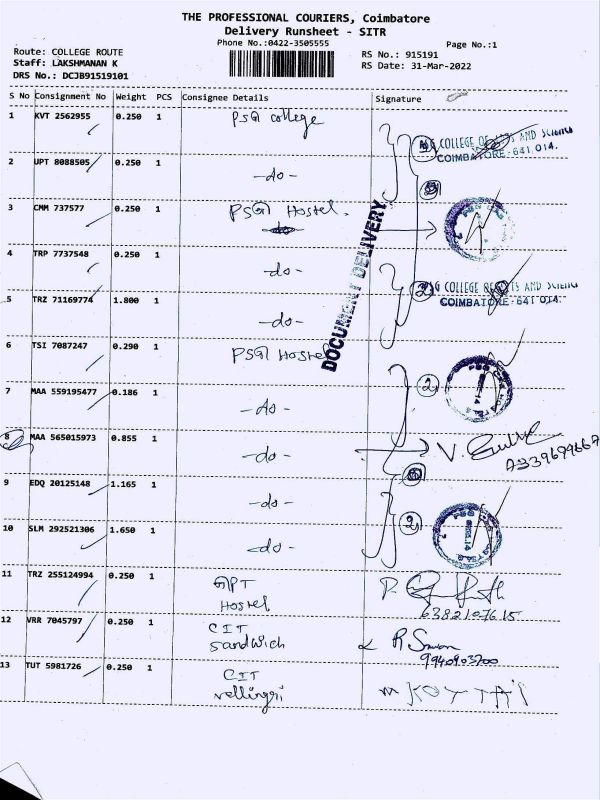 THE PROFESSIONAL COURIERS, Coimbatore
Delivery Runsheet - SITR
Phone No.:0422-3505555
Page No.:1
Route: COLLEGE ROUTE
Staff: LAKSHMANAN K
DRS No.: DCJB91519101
RS No.: 915191
RS Date: 31-Mar-2022
S No Consignment No Weight PCS Consignee Details Signature
1 KVT 2562955 0.250 1 PSG college
COLLEGE OF ARTS AND SCIENCE
COIMBATORE-641 014.
2 UPT 8088505 0.250 1 -do-
3 CMM 737577 0.250 1 PSG Hostel.
DOCUMENT DELIVERY
4 TRP 7737548 0.250 1 -do-
2 G COLLEGE OF ARTS AND SCIENCE
COIMBATORE-641 014.
5 TRZ 71169774 1.800 1 -do-
6 TSI 7087247 0.290 1 PSG Hostel
2
7 MAA 559195477 0.186 1 -do-
8 MAA 565015973 0.855 1 -do- V.
9 EDQ 20125148 1.165 1 -do-
10 SLM 292521306 1.650 1 -do- 2
11 TRZ 255124994 0.250 1 GPT
Hostel
6382107615
12 VRR 7045797 0.250 1 CIT
sandwich
9940903700
13 TUT 5981726 0.250 1 CIT